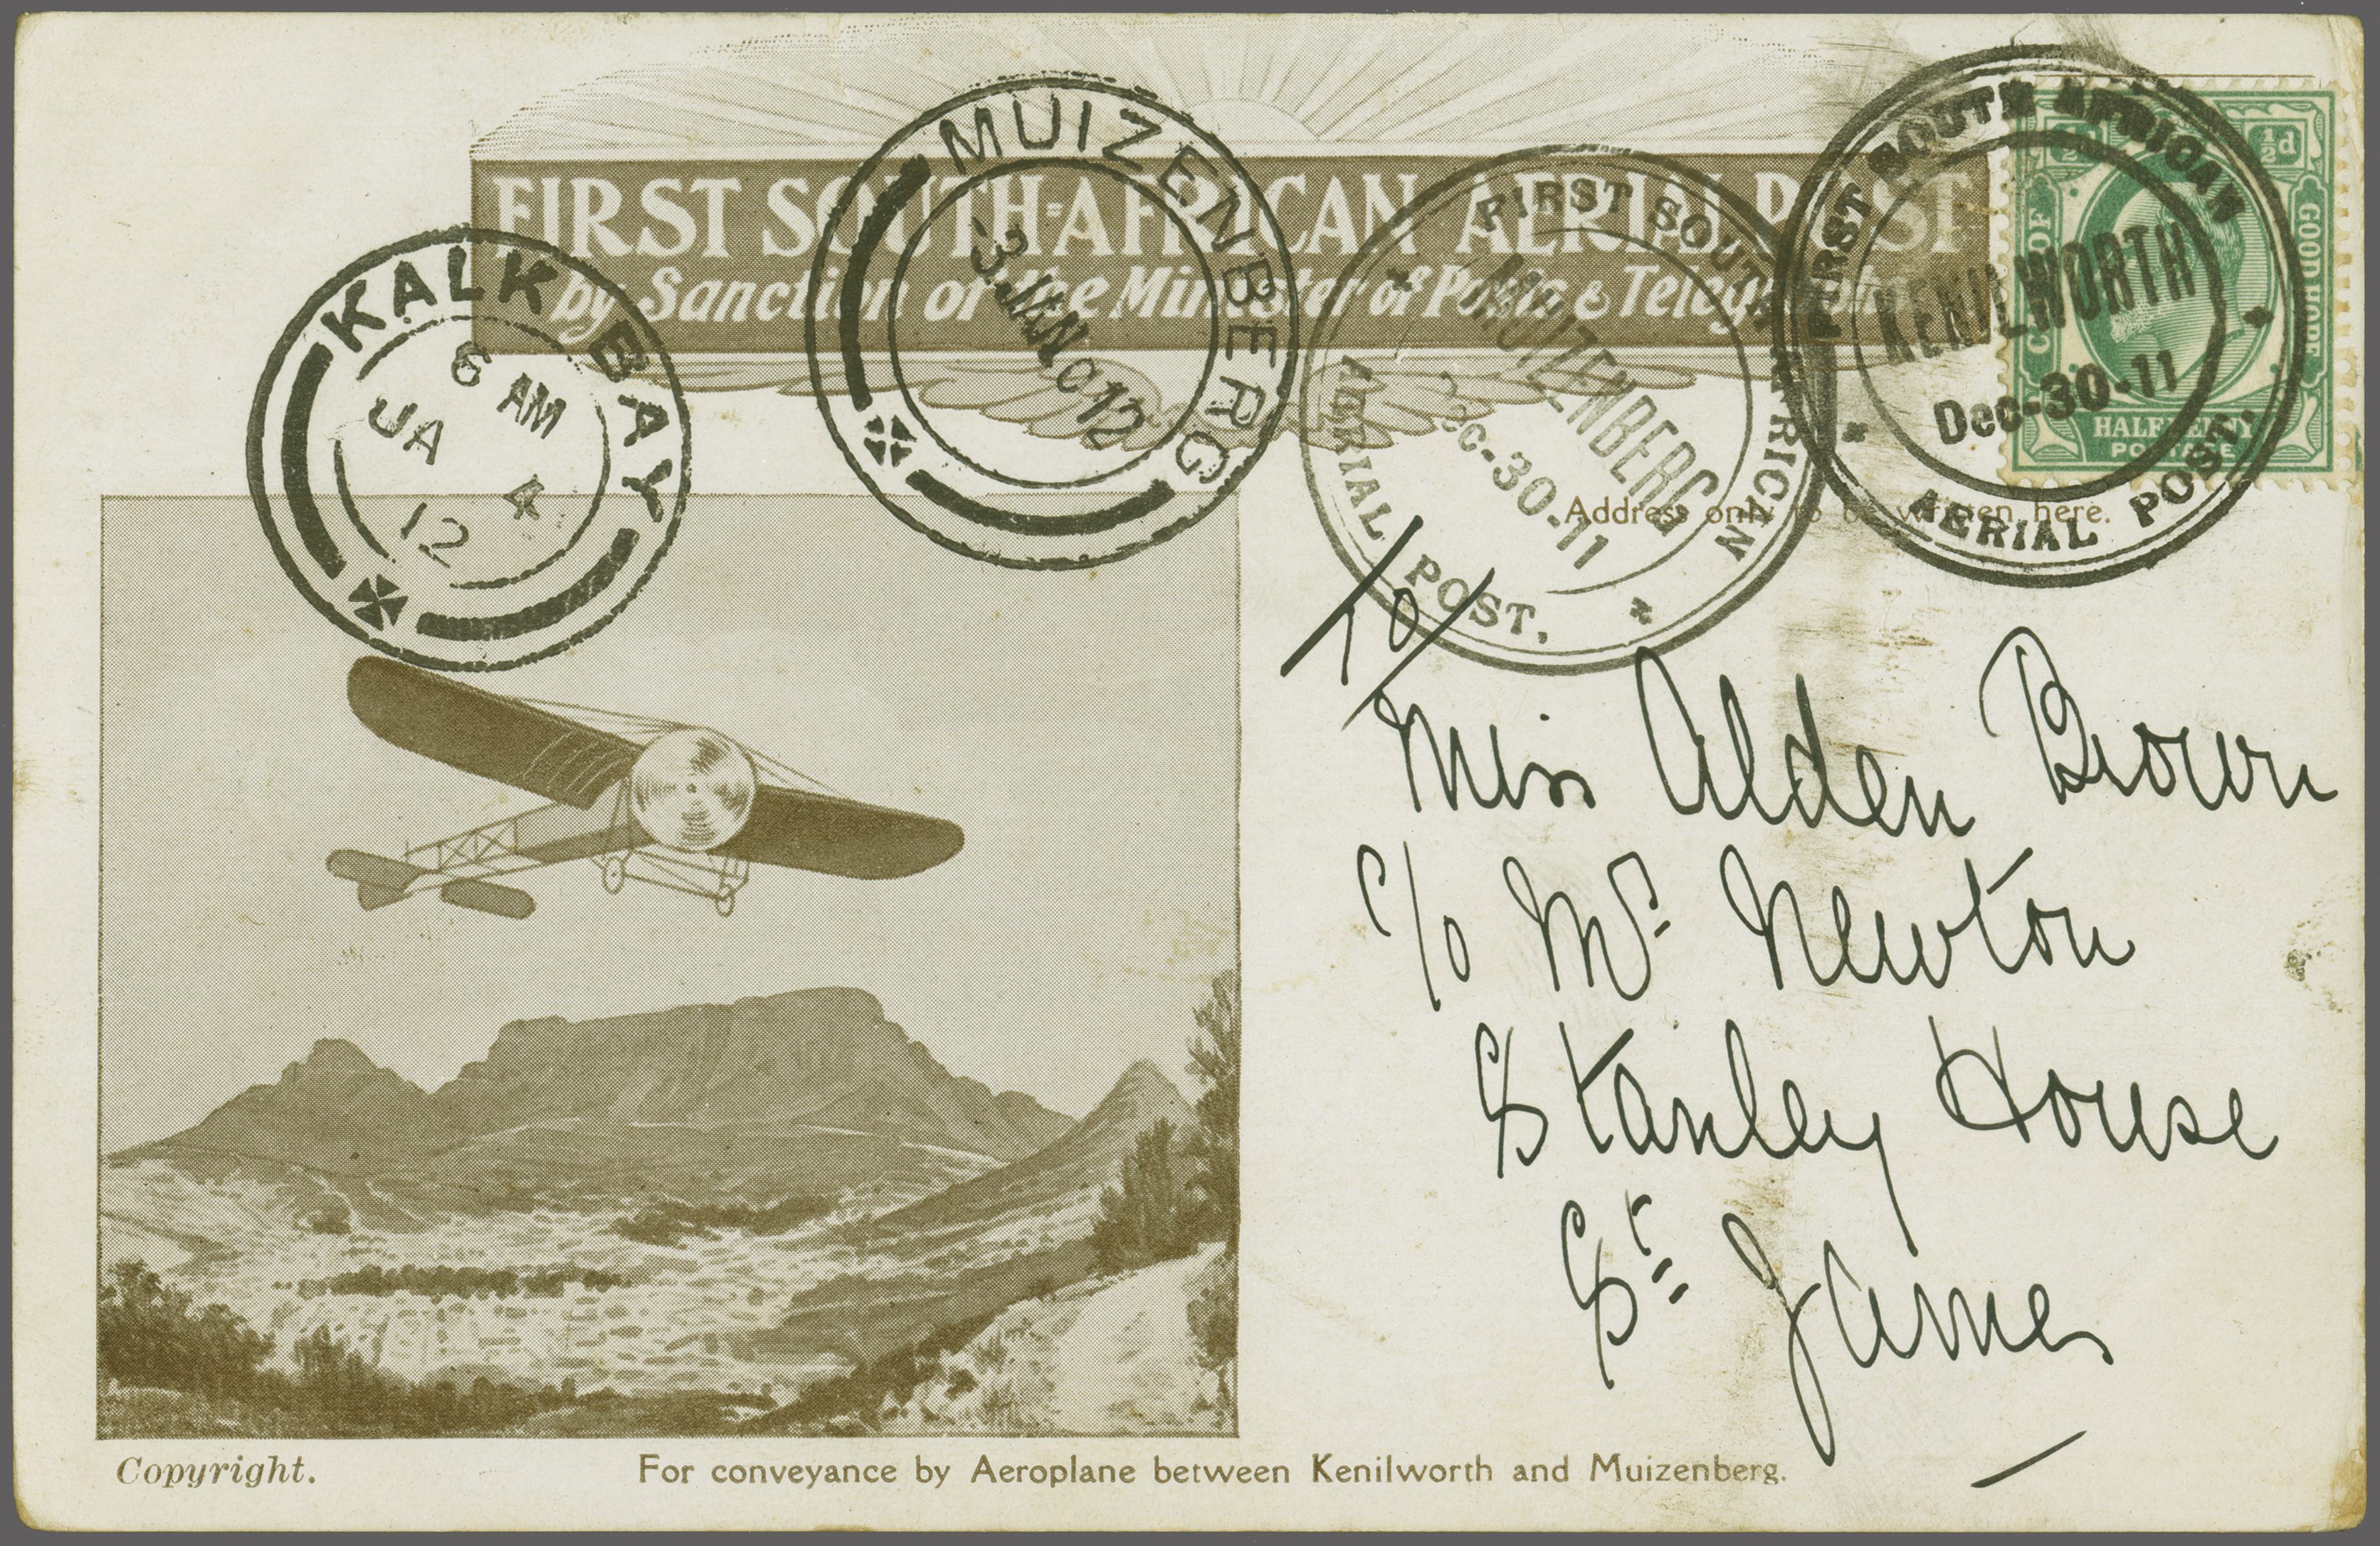 FIRST SOUTH=AFRICAN AERIAL POST
by Sanction of the Minister of Posts & Telegraphs
KALK BAY
6 AM
JA 4
12
MUIZENBERG
3 JAN 12
FIRST SOUTH AFRICAN
MUIZENBERG
Dec-30-11
AERIAL POST.
FIRST SOUTH AFRICAN
KENILWORTH
Dec-30-11
AERIAL POST.
½d ½d
C OF GOOD HOPE
HALFPENNY
POSTAGE
Address only to be written here.
To
Miss Alden Brown
c/o Mr Newton
Stanley House
St James
Copyright.
For conveyance by Aeroplane between Kenilworth and Muizenberg.